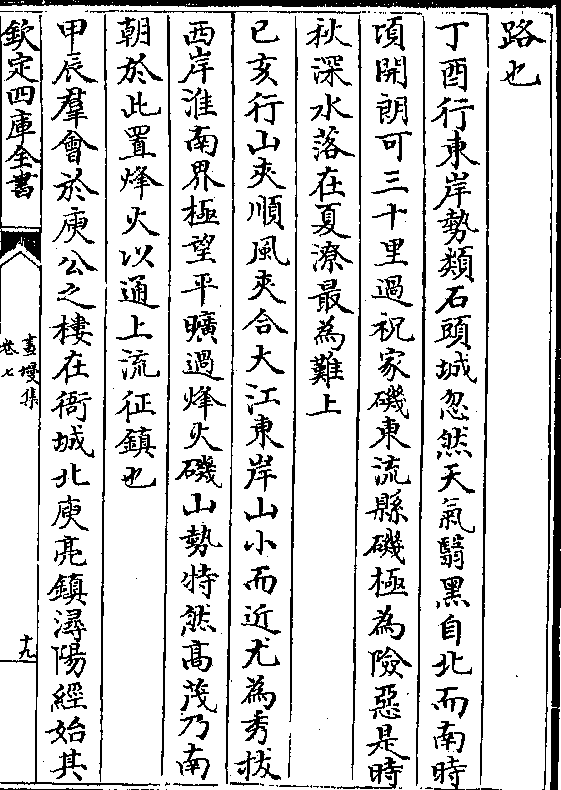 路也
丁酉行東岸勢類石頭城忽然天氣翳黑自北而南時
項開朗可三十里過祝家磯東流縣磯極為險惡是時
秋深水落在夏潦最為難上
已亥行山夾順風夾合大江東岸山小而近尤為秀拔
西岸淮南界極望平曠過烽火磯山勢特然高茂乃南
朝於此置烽火以通上流征鎮也
甲辰羣會於庾公之樓在衙城北庾亮鎮潯陽經始其
欽定四庫全書
畫墁集
卷七
十九